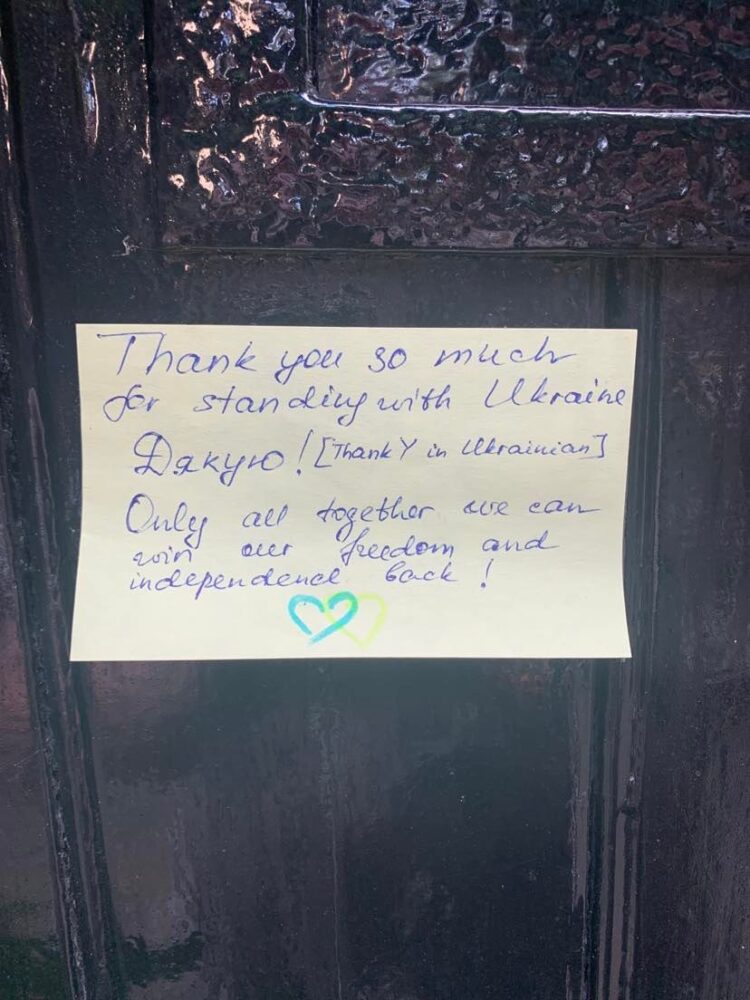 Thank you so much
for standing with Ukraine
Дякую! [Thank Y in Ukrainian]
Only all together we can
win our freedom and
independence back!